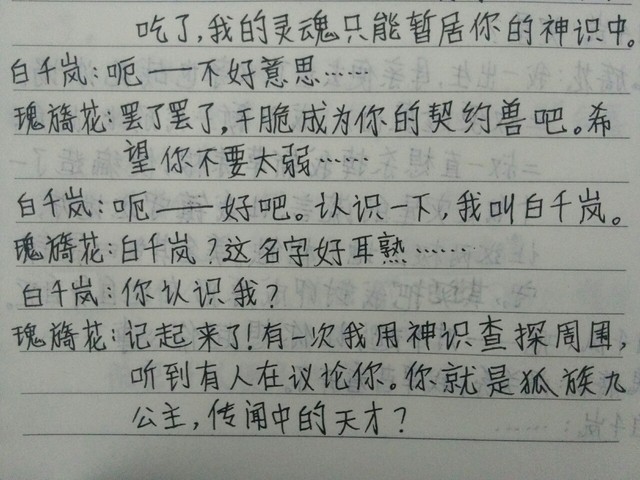 吃了,我的灵魂只能暂居你的神识中。
白千岚:呃——不好意思……
瑰旖花:罢了罢了,干脆成为你的契约兽吧。希
望你不要太弱……
白千岚:呃——好吧。认识一下,我叫白千岚。
瑰旖花:白千岚?这名字好耳熟……
白千岚:你认识我?
瑰旖花:记起来了!有一次我用神识查探周围,
听到有人在议论你。你就是狐族九
公主,传闻中的天才?